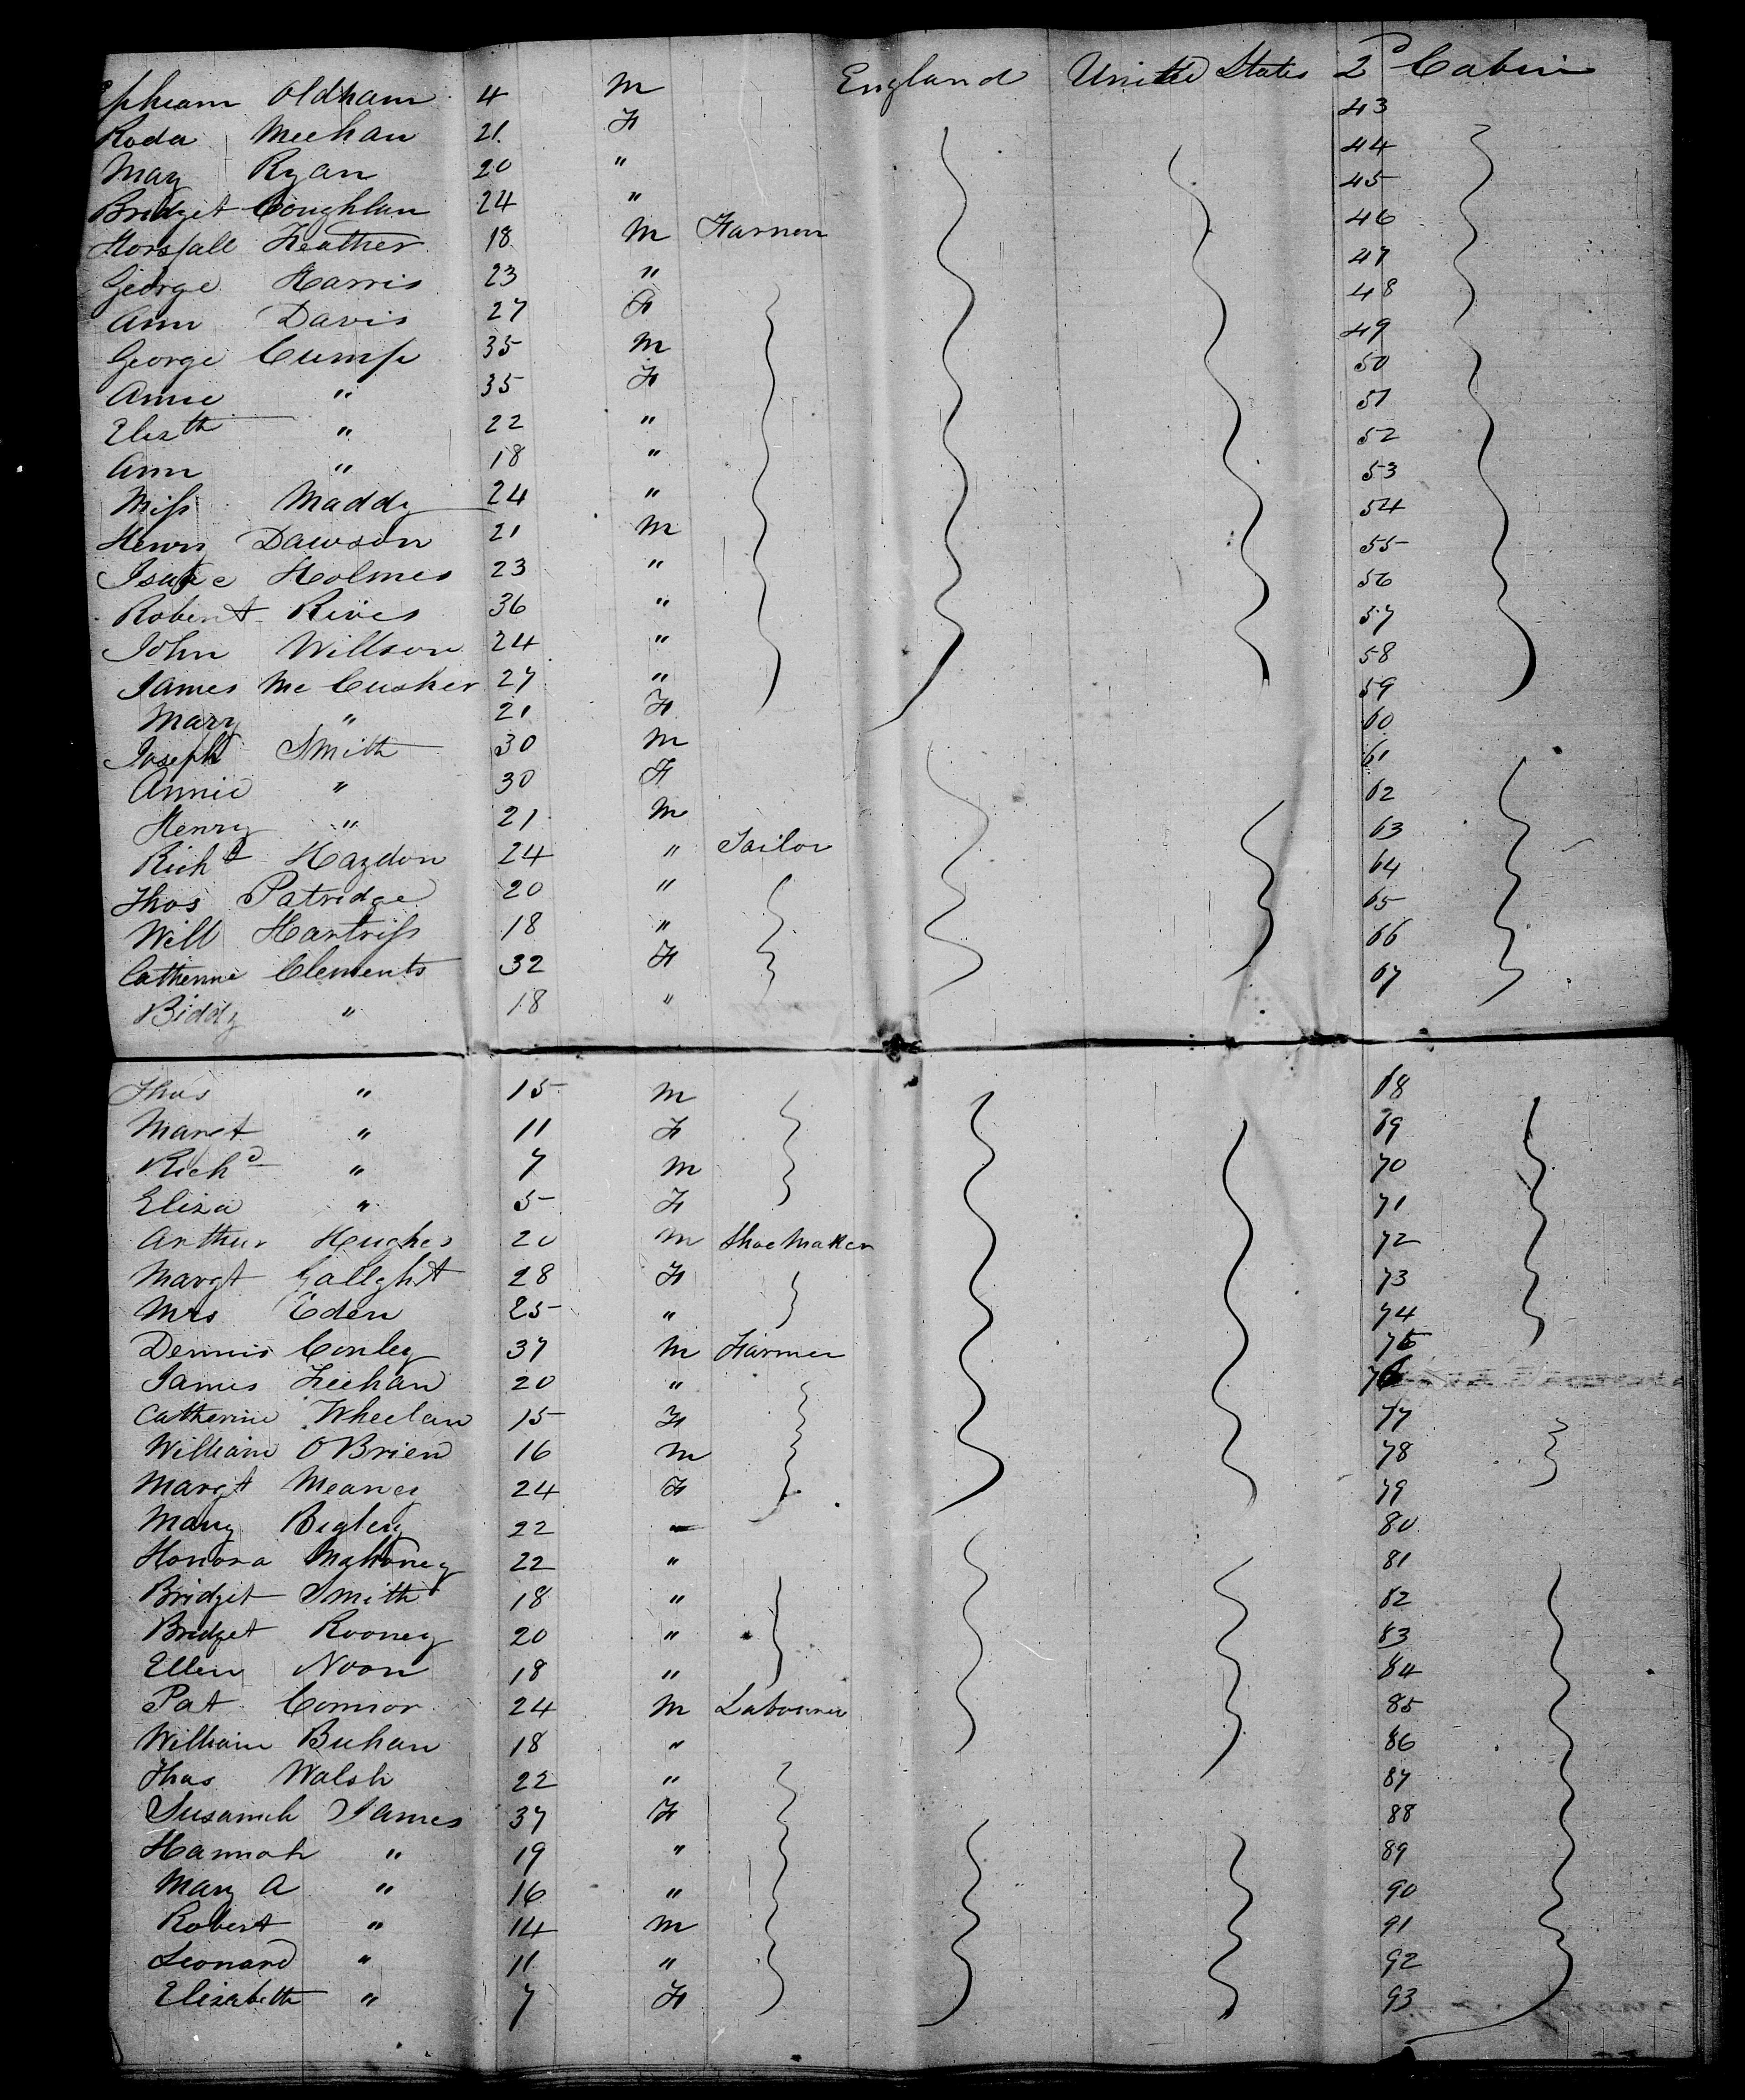 Ephraim Oldham 4 M England United States 2d Cabin
Roda Meehan 21 F 43
Mary Ryan 20 " 44
Bridget Coughlan 24 " 45
Horsfall Heather 18 M Farmer 46
George Harris 23 " 47
Ann Davis 27 F 48
George Cump 35 M 49
Annie " 35 F 50
Elizth " 22 " 51
Ann " 18 " 52
Miss Maddy 24 " 53
Henry Dawson 21 M 54
Isaac Holmes 23 " 55
Robert Rives 36 " 56
John Willson 24 " 57
James McCusker 27 " 58
Mary " 21 F 59
Joseph Smith 30 M 60
Annie " 30 F 61
Henry " 21 M 62
Richd Haydon 24 " Tailor 63
Thos Patridge 20 " 64
Will Hartriss 18 " 65
Catherine Clements 32 F 66
Biddy " 18 " 67
Thos " 15 M 68
Margt " 11 F 69
Richd " 7 M 70
Eliza " 5 F 71
Arthur Hughes 20 M Shoe Maker 72
Margt Gallght 28 F 73
Mrs Eden 25 " 74
Dennis Conley 37 M Farmer 75
James Feehan 20 " 76
Catherine Wheelan 15 F 77
William OBrien 16 M 78
Margt Meaney 24 F 79
Mary Bigley 22 " 80
Honora Mahoney 22 " 81
Bridget Smith 18 " 82
Bridget Rooney 20 " 83
Ellen Noon 18 " 84
Pat Connor 24 M Labourer 85
William Buhan 18 " 86
Thos Walsh 22 " 87
Susannah James 37 F 88
Hannah " 19 " 89
Mary A " 16 " 90
Robert " 14 M 91
Leonard " 11 " 92
Elizabeth " 7 F 93